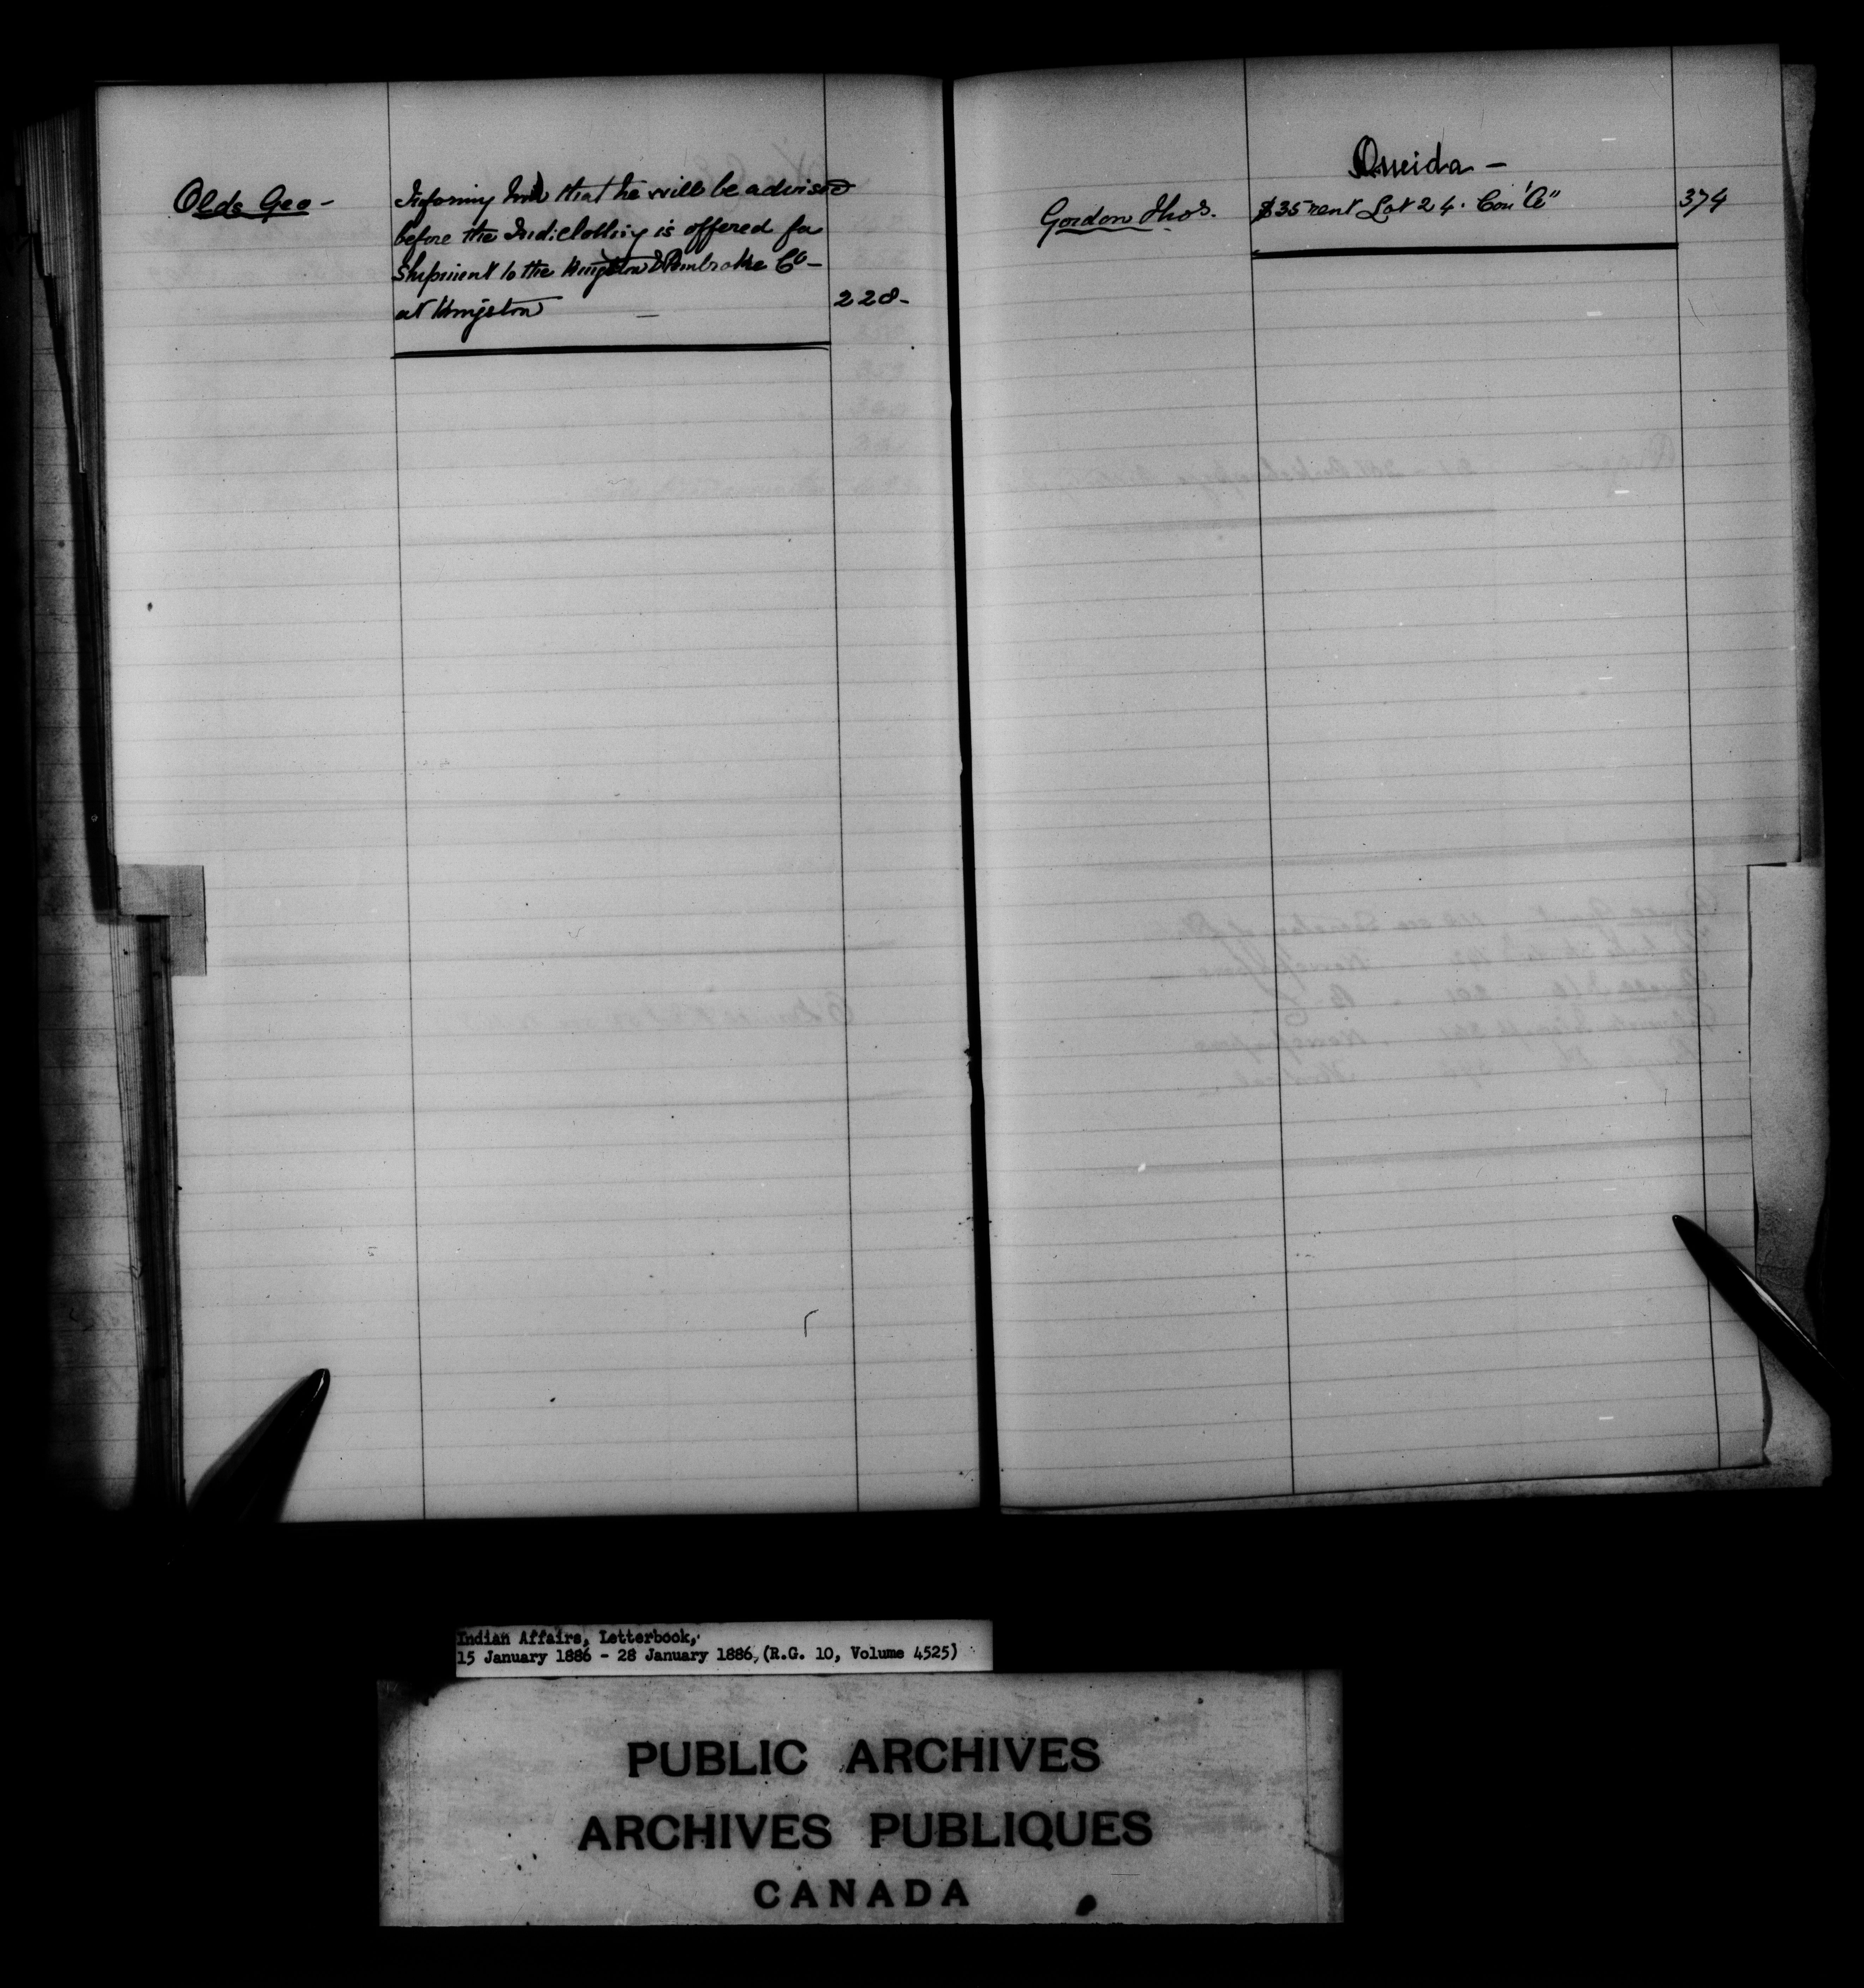 Olds Geo -
Informing him that he will be advised
before the Indi: clothing is offered for
Shipment to the Kingston & Pembroke Co -
at Kingston — 228 -
Oneida -
Gordon Thos. $35 rent Lot 24. Con "A" 374
Indian Affairs, Letterbook,
15 January 1886 - 28 January 1886, (R.G. 10, Volume 4525)
PUBLIC ARCHIVES
ARCHIVES PUBLIQUES
CANADA